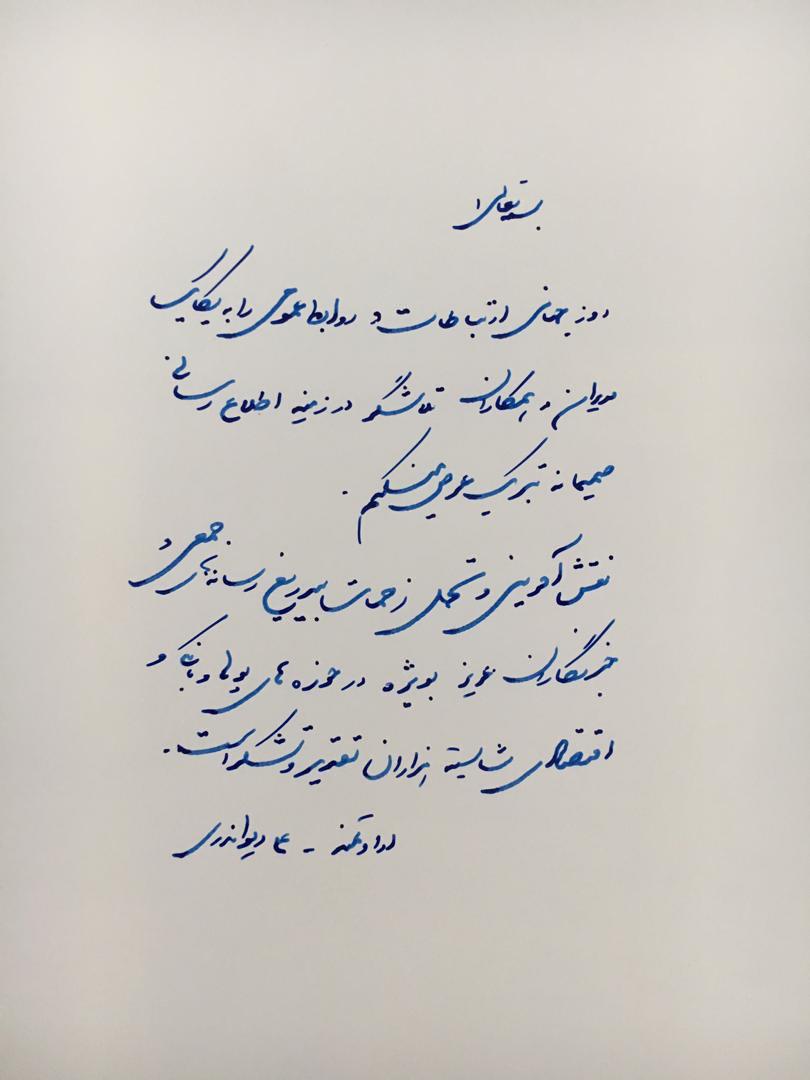 بسمه تعالی
روز جهانی ارتباطات و روابط عمومی را به یکایک
مدیران و همکاران تلاشگر در زمینه اطلاع رسانی
صمیمانه تبریک عرض میکنم.
نقش آفرینی و تحمل زحمات بیدریغ رسانه های جمعی و
خبرنگاران عزیز بویژه در حوزه های پولی و بانکی و
اقتصادی شایسته هزاران تقدیر و تشکر است.
ارادتمند - علی دیواندری